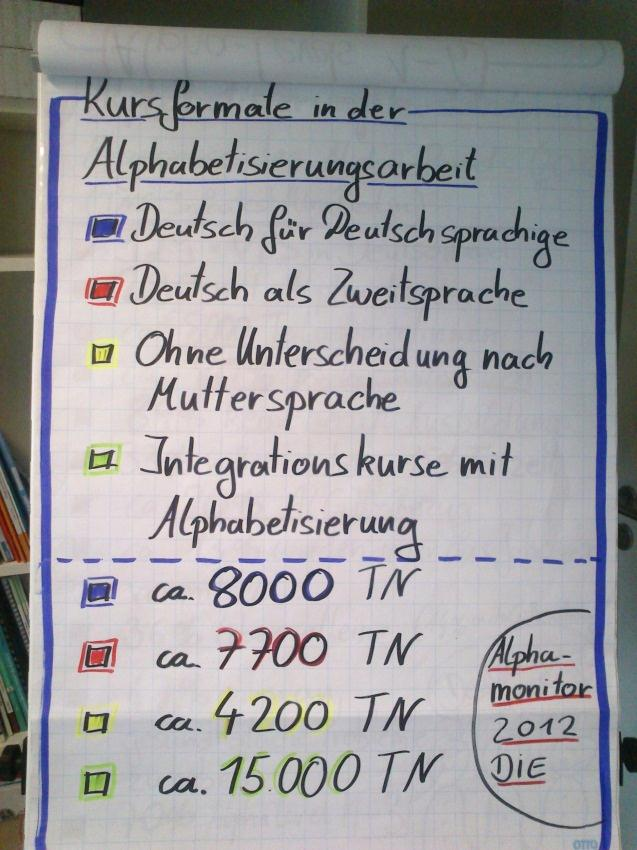 Kursformate in der
Alphabetisierungsarbeit
Deutsch für Deutschsprachige
Deutsch als Zweitsprache
Ohne Unterscheidung nach
Muttersprache
Integrationskurse mit
Alphabetisierung
ca. 8000 TN
ca. 7700 TN
ca. 4200 TN
ca. 15.000 TN
Alpha-
monitor
2012
DIE
OTTO